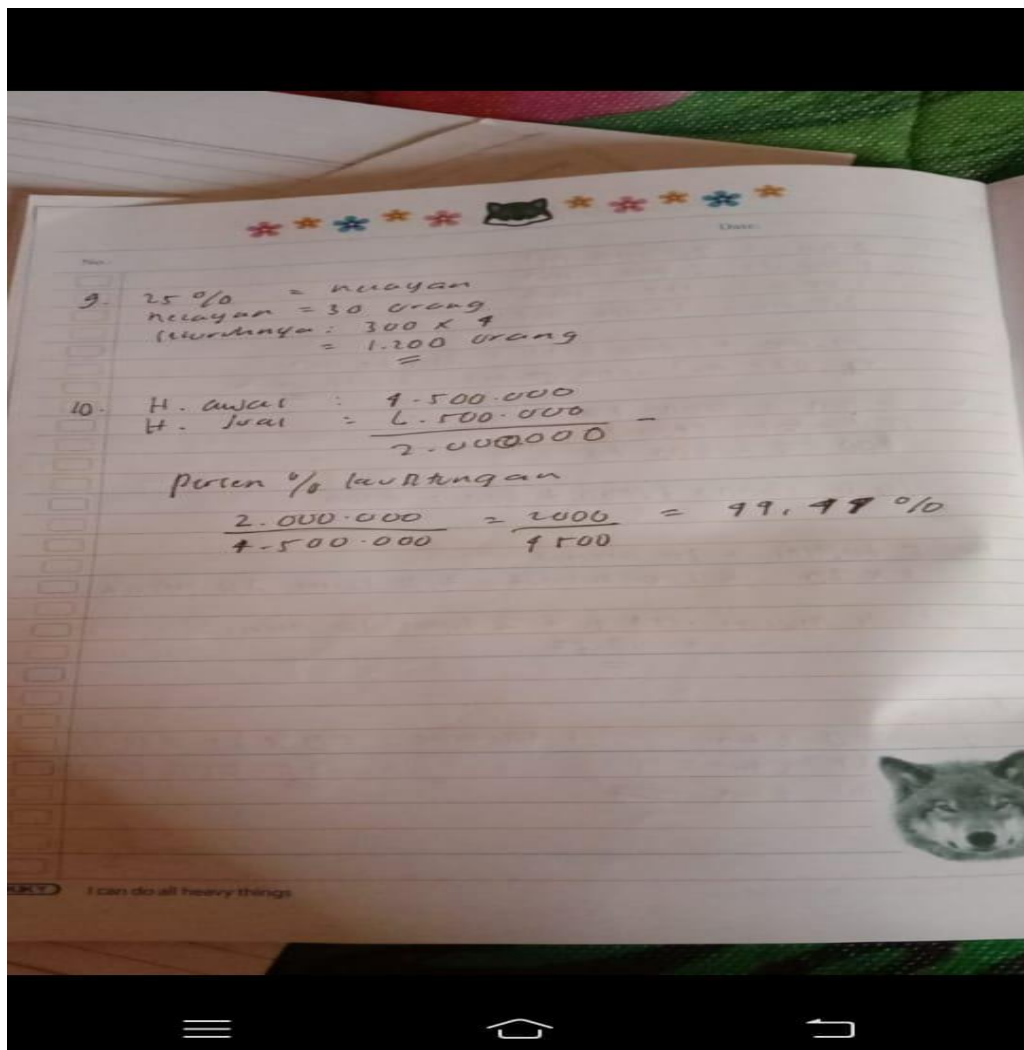 No.:
Date:
9. 25 % = nelayan
nelayan = 30 orang
seluruhnya : 300 x 4
= 1.200 orang
10. H. awal : 4.500.000
H. Jual = 6.500.000 -
2.000000
persen % keuntungan
2.000.000 / 4.500.000 = 2000 / 4500 = 44,44 %
I can do all heavy things